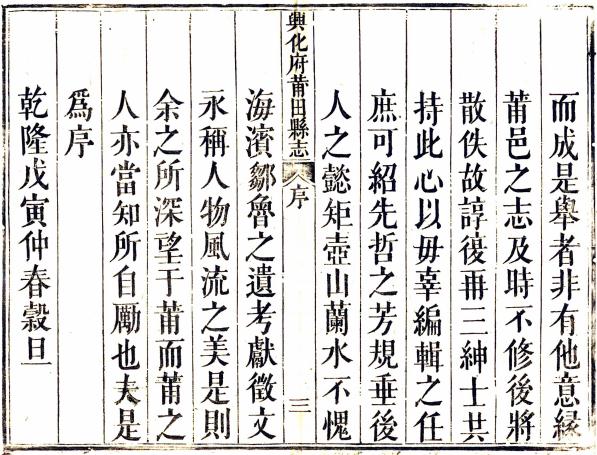 而成是舉者非有他意緣
莆邑之志及時不修後將
散佚故諄復再三紳士共
持此心以毋辜編輯之任
庶可紹先哲之芳規垂後
人之懿矩壺山蘭水不愧
興化府莆田縣志 序 三
海濱鄒魯之遺考獻徵文
永稱人物風流之美是則
余之所深望于莆而莆之
人亦當知所自勵也夫是
為序
乾隆戊寅仲春穀旦